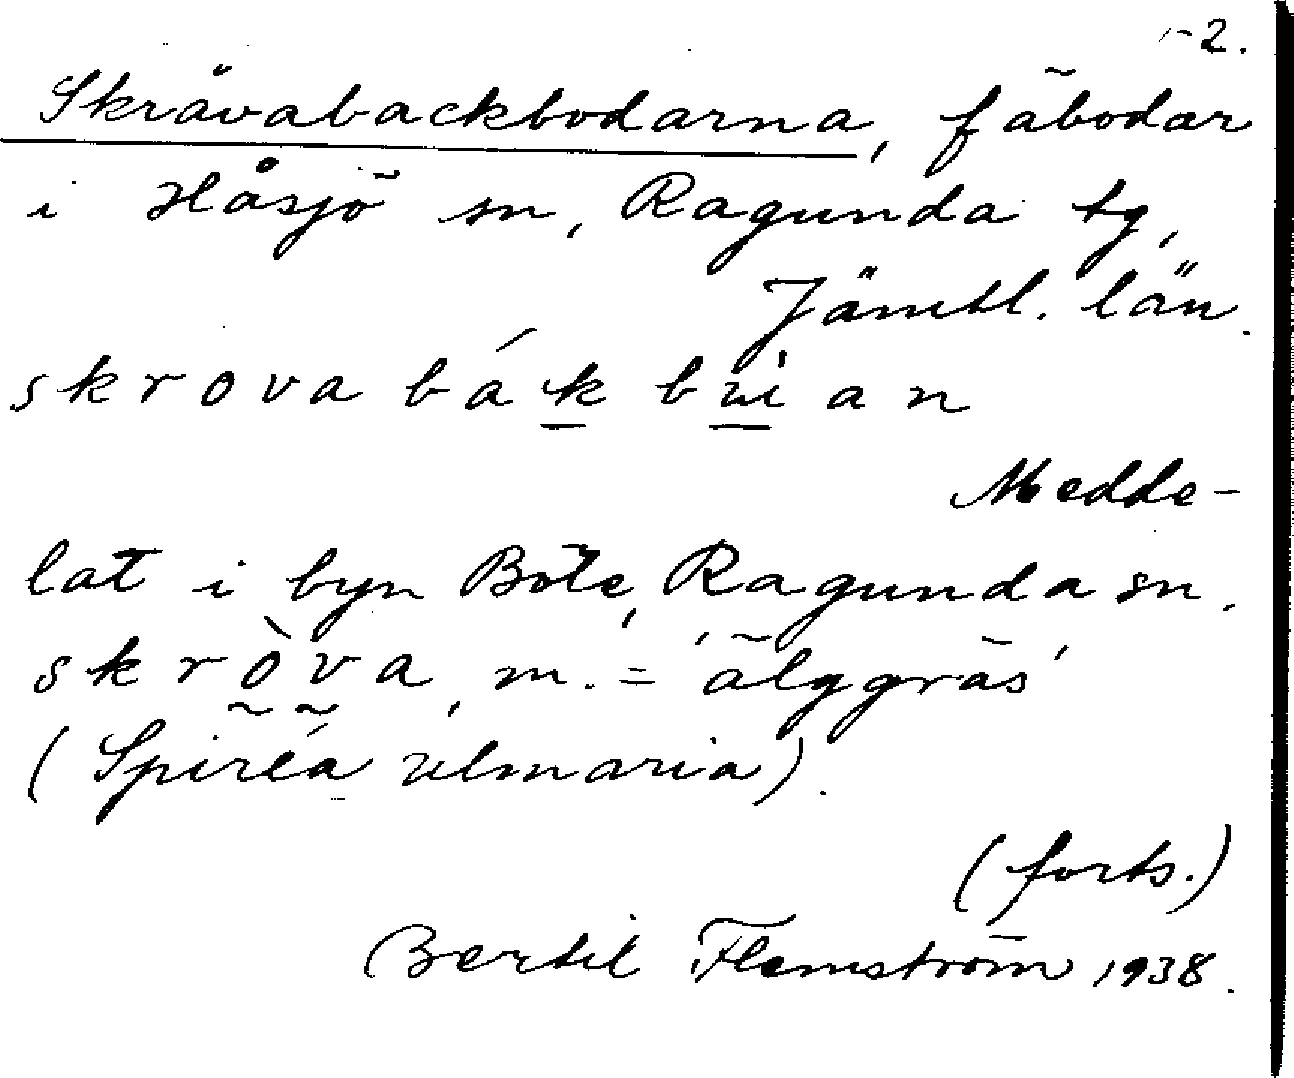 1-2.
Skråvabackbodarna, fäbodar
i Håsjö sn, Ragunda tg,
Jämtl. län.
skrova bák bùi an
Medde-
lat i byn Böle, Ragunda sn.
skròva, m. = 'älggräs'
(Spiréa ulmaria).
(forts.)
Bertil Flemström 1938.